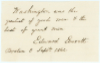 Washington was the
greatest of good men & the
best of great men.
Edward Everett
Boston 5 Sept. 1861.